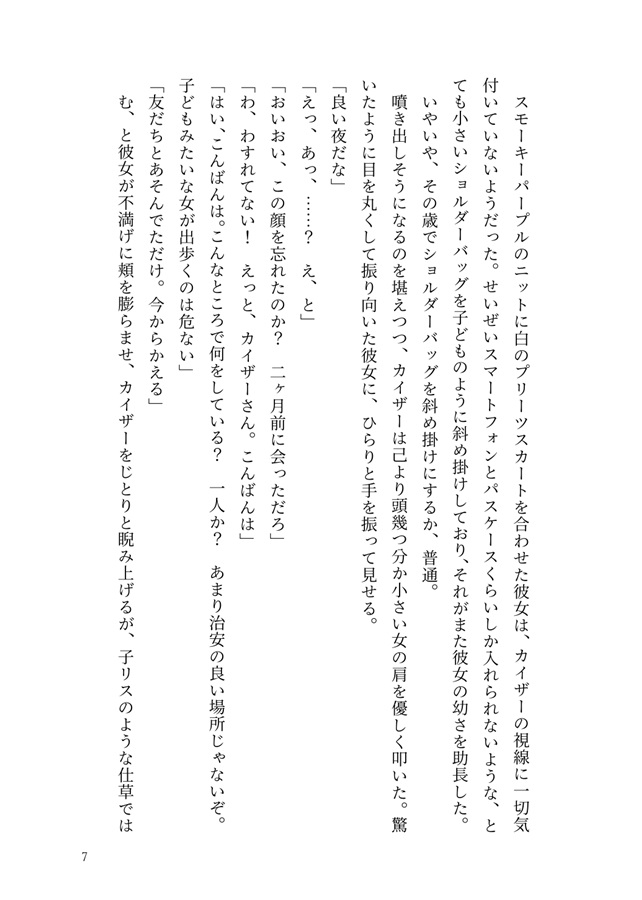 スモーキーパープルのニットに白のプリーツスカートを合わせた彼女は、カイザーの視線に一切気
付いていないようだった。せいぜいスマートフォンとパスケースくらいしか入れられないような、と
ても小さいショルダーバッグを子どものように斜め掛けしており、それがまた彼女の幼さを助長した。
　いやいや、その歳でショルダーバッグを斜め掛けにするか、普通。
　噴き出しそうになるのを堪えつつ、カイザーは己より頭幾つ分か小さい女の肩を優しく叩いた。驚
いたように目を丸くして振り向いた彼女に、ひらりと手を振って見せる。
「良い夜だな」
「えっ、あっ、……？　え、と」
「おいおい、この顔を忘れたのか？　二ヶ月前に会っただろ」
「わ、わすれてない！　えっと、カイザーさん。こんばんは」
「はい、こんばんは。こんなところで何をしている？　一人か？　あまり治安の良い場所じゃないぞ。
子どもみたいな女が出歩くのは危ない」
「友だちとあそんでただけ。今からかえる」
　む、と彼女が不満げに頬を膨らませ、カイザーをじとりと睨み上げるが、子リスのような仕草では
7